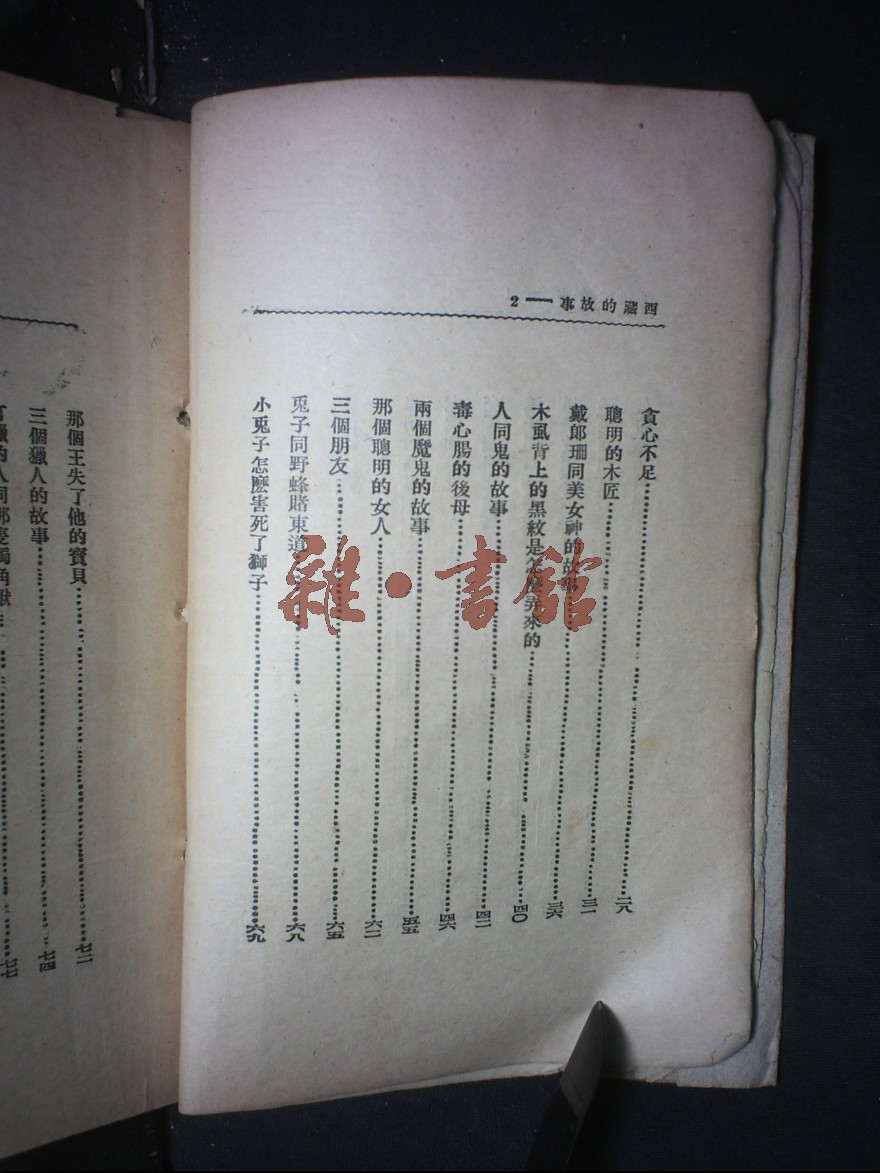 西藏的故事 — 2
貪心不足……二八
聰明的木匠……三一
戴郎珊同美女神的故事……三六
木虱背上的黑紋是怎麼弄來的……四〇
人同鬼的故事……四二
毒心腸的後母……四六
兩個魔鬼的故事……五五
那個聰明的女人……六二
三個朋友……六五
兎子同野蜂賭東道……六八
小兎子怎麼害死了獅子……六九
那個王失了他的寶貝……七二
三個獵人的故事……七四
的人同那隻獨角獸……七七
雜·書館